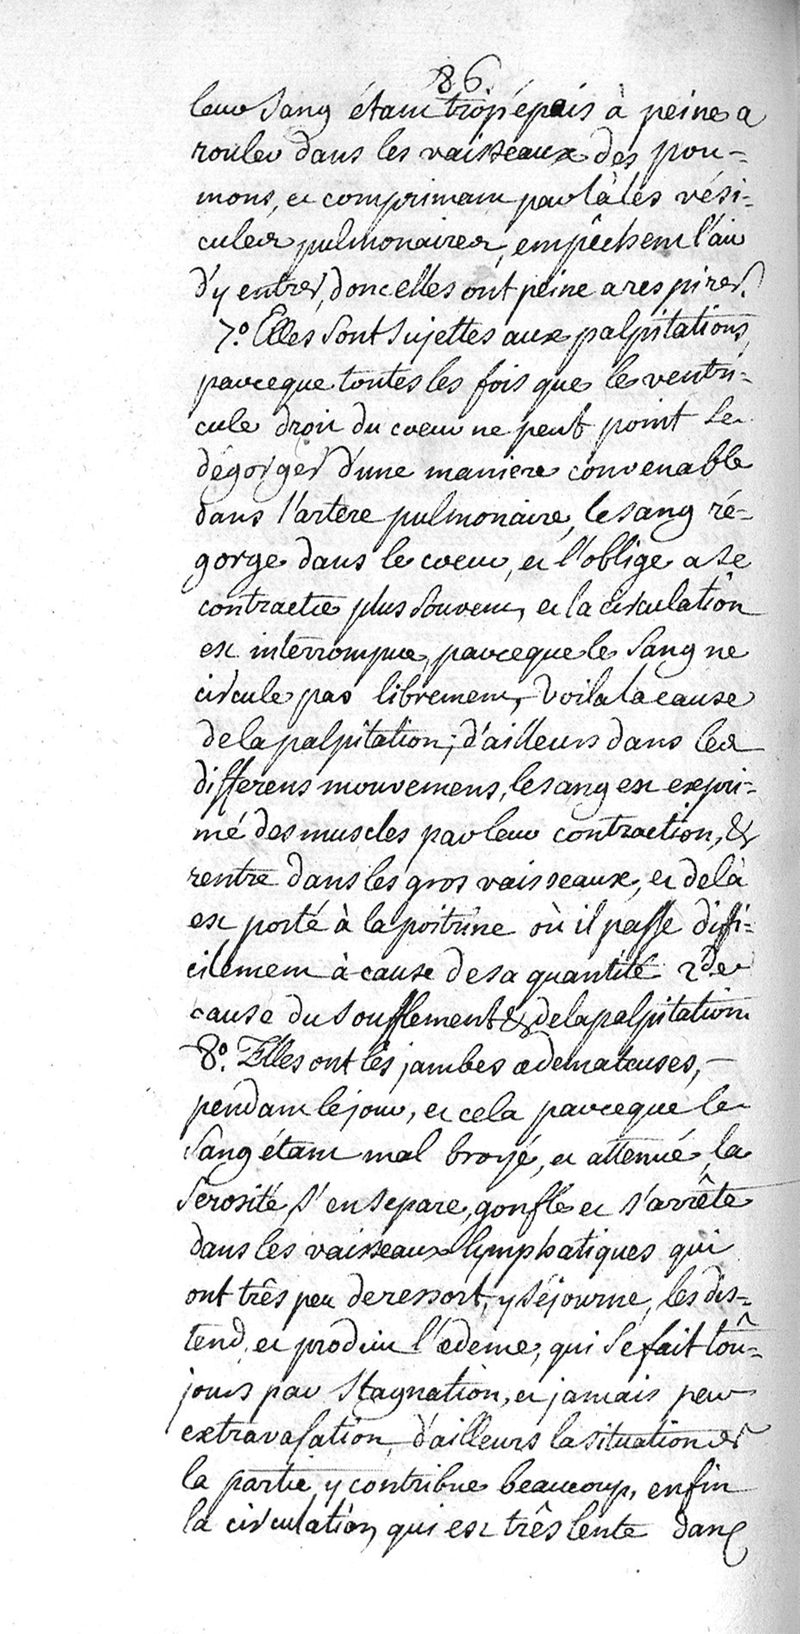 86.
leur sang étant trop épais à peine a
rouler dans les vaisseaux des pou=
mons, et comprimant par là les vési=
cules pulmonaires, empêchent l'air
d'y entrer, donc elles ont peine a respirer.
7.° Elles sont sujettes aux palpitations,
parceque toutes les fois que le ventri=
cule droit du coeur ne peut point se
dégorger d'une maniere convenable
dans l'artere pulmonaire, le sang ré=
gorge dans le coeur, et l'oblige a se
contracter plus souvent, et la circulation
est interrompue, parceque le sang ne
circule pas librement, voila la cause
de la palpitation; d'ailleurs dans les
differens mouvemens, le sang est expri=
mé des muscles par leur contraction, &
rentre dans les gros vaisseaux, et de là
est porté à la poitrine où il passe diffi=
cilement à cause de sa quantité 2de
cause du soufflement & de la palpitation
8.° Elles ont les jambes œdemateuses,
pendant le jour, et cela parceque le
sang étant mal broyé, et attenué, la
serosité s'en separe, gonfle et s'arrête
dans les vaisseaux lymphatiques qui
ont três peu de ressort, y séjourne, les dis=
tend, et produit l'œdeme, qui se fait toû=
jours par stagnation, et jamais par
extravasation, d'ailleurs la situation de
la partie y contribue beaucoup, enfin
la circulation, qui est três lente dans